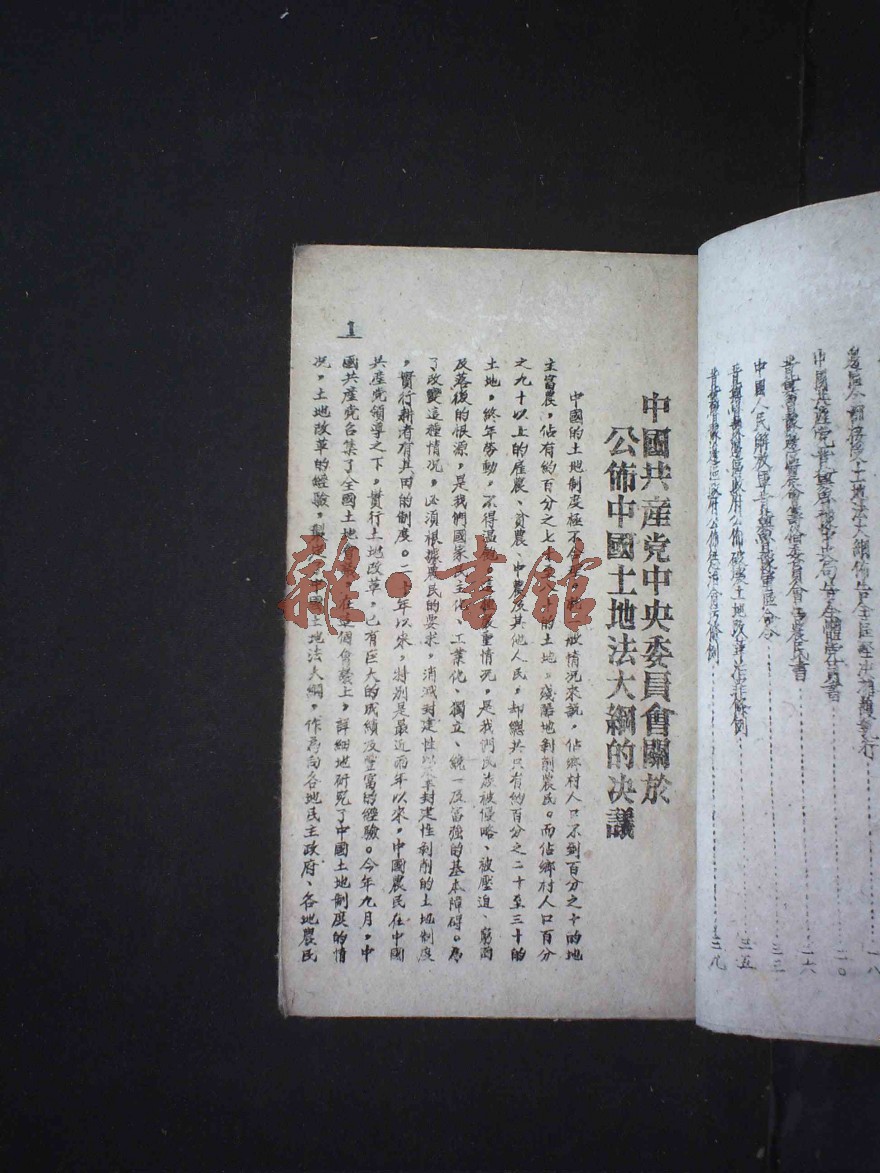 中國共産党中央委員會關於
公佈中國土地法大綱的决議
中國的土地制度極不合
情况來説，佔鄉村人口不到百分之十的地
主富農，佔有約百分之七
的土地，殘酷地剥削農民。而佔鄉村人口百分
之九十以上的雇農、貧農、中農及其他人民，却總共只有約百分之二十至三十的
土地，終年勞動，不得温飽。
重情况，是我們民族被侵略、被壓迫、窮困
及落後的根源，是我們國家民主化、工業化、獨立、統一及富強的基本障碍。為
了改變這種情况，必須根據農民的要求，消滅封建性
半封建性剥削的土地制度
，實行耕者有其田的制度。二十年以來，特别是最近兩年以來，中國農民在中國
共産党領導之下，實行土地改革，已有巨大的成績及豐富的經驗。今年九月，中
國共産党召集了全國土地會
，在這個會議上，詳細地研究了中國土地制度的情
况，土地改革的經驗，製定了中國土地法大綱，作為向各地民主政府、各地農民
1
中國人民解放軍晋
區命令
三九
三五
三二
二六
二〇
一八
雜·書館